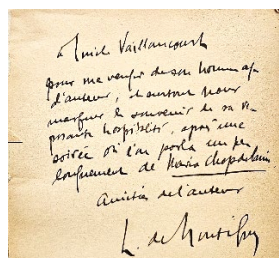 à Emile Vaillancourt
pour me venger de son hommage
d'auteur, et surtout pour
marquer le souvenir de sa
hospitalité, après une
soirée où l'on parla un peu
longuement de Maria Chapdelaine
Amitiés de l'auteur
L. de Montigny